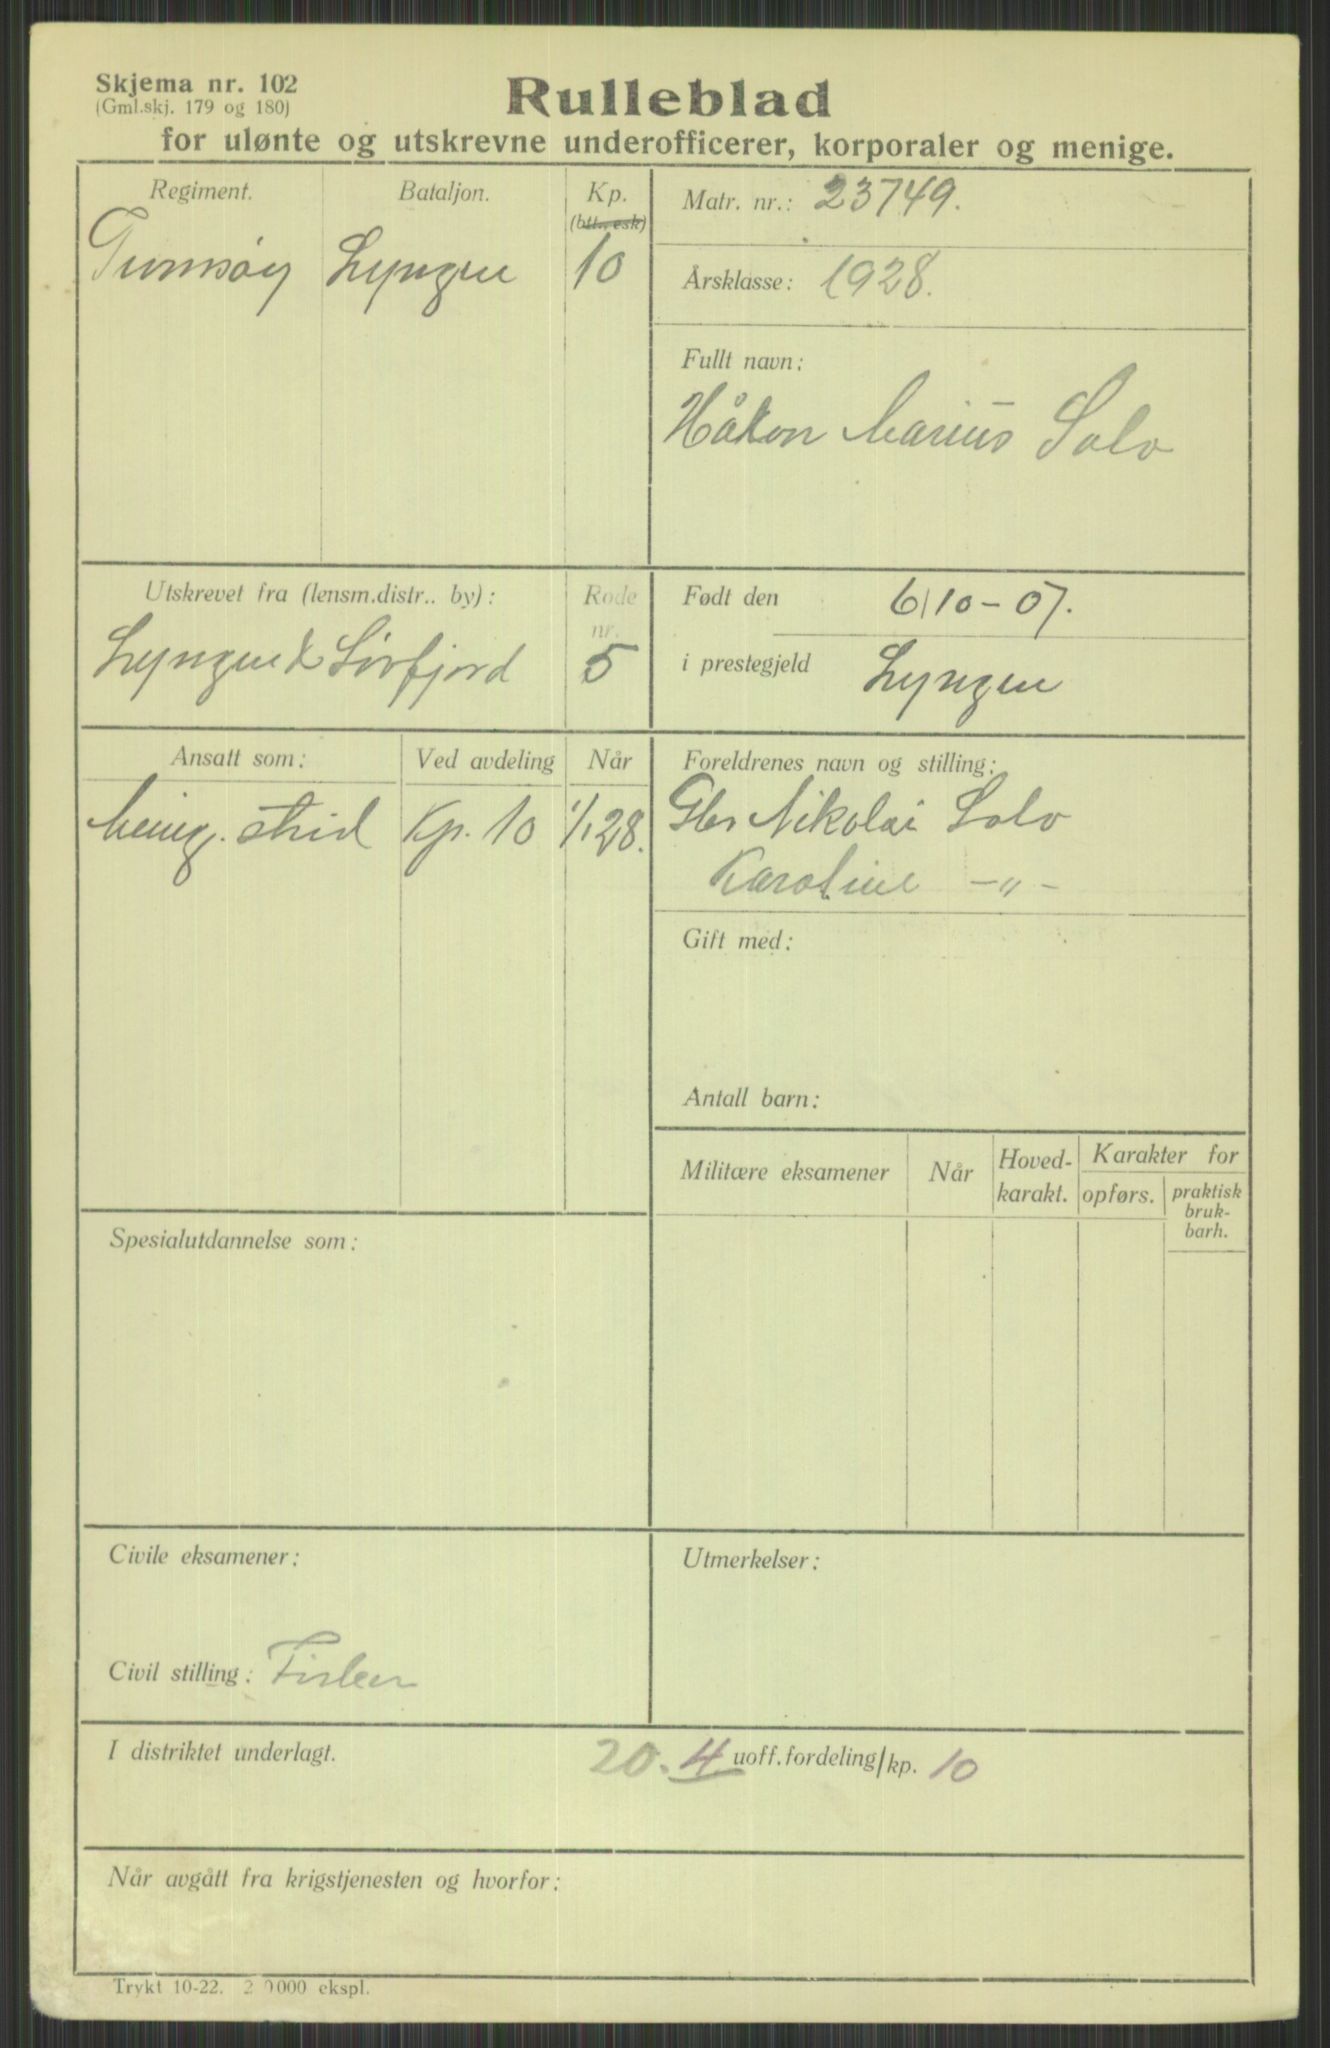 Skjema nr. 102
(Gml.skj. 179 og 180)
Rulleblad
for ulønte og utskrevne underofficerer, korporaler og menige.
Regiment. Bataljon. Kp.
(btt., esk)
Tromsøy Lyngen 10
Matr. nr.: 23749.
Årsklasse: 1928.
Fullt navn:
Håkon Marius Solv
Utskrevet fra (lensm.distr.. by): Rode nr.
Lyngen & Sörfjord 5
Født den 6/10-07.
i prestegjeld Lyngen
Ansatt som: Ved avdeling Når
Menig. strid Kp. 10 1/1 28.
Foreldrenes navn og stilling:
Nikolai Solv
Karoline -"-
Gift med:
Antall barn:
Militære eksamener Når Hoved-karakt. Karakter for
opførs. praktisk
bruk-
barh.
Spesialutdannelse som:
Civile eksamener:
Civil stilling: Fisker
Utmerkelser:
I distriktet underlagt. 20. 4 uoff.fordeling/kp. 10
Når avgått fra krigstjenesten og hvorfor:
Trykt 10-22. 2 0000 ekspl.